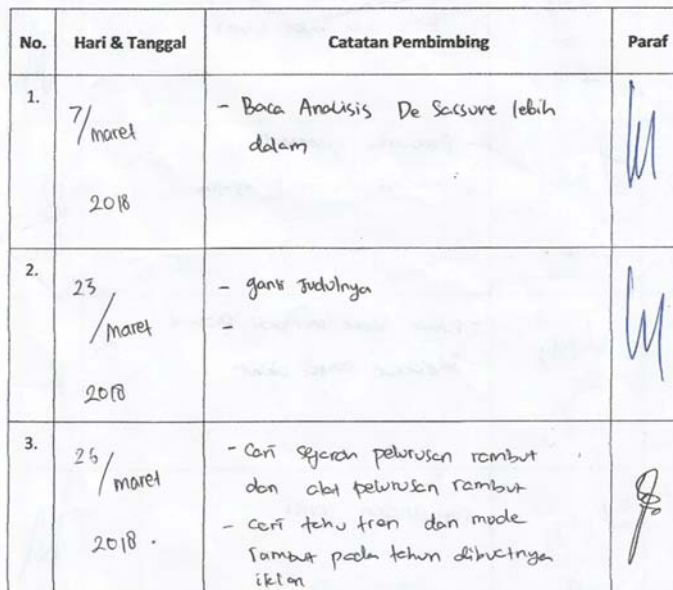 No. Hari & Tanggal Catatan Pembimbing Paraf
1. 7/maret 2018
- Baca Analisis De Sacsure lebih
dalam
2. 23/maret 2018
- ganti Judulnya
-
3. 25/maret 2018.
- Cari sejarah pelurusan rambut
dan alat pelurusan rambut
- Cari tahu tren dan mode
rambut pada tahun dibuatnya
iklan